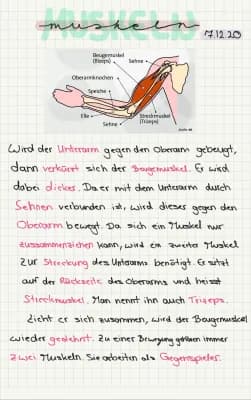 MUSKELN
muskeln
7.12.20
Beugemuskel
(Bizeps)
Sehne
Oberarmknochen
Speiche
Elle
Sehne
Streckmuskel
(Trizeps)
Wird der Unterarm gegen den Oberarm gebeugt,
dann verkürzt sich der Beugemuskel. Er wird
dabei dicker. Da er mit dem Unterarm durch
Sehnen verbunden ist, wird dieser gegen den
Oberarm bewegt. Da sich ein Muskel nur
zusammenziehen kann, wird ein zweiter Muskel
zur Streckung des Unterarms benötigt. Er sitzt
auf der Rückseite des Oberarms und heisst
Streckmuskel. Man nennt ihn auch Trizeps.
Zieht er sich zusammen, wird der Beugemuskel
wieder gedehnt. Zu einer Bewegung gehören immer
zwei Muskeln. Sie arbeiten als Gegenspieler.